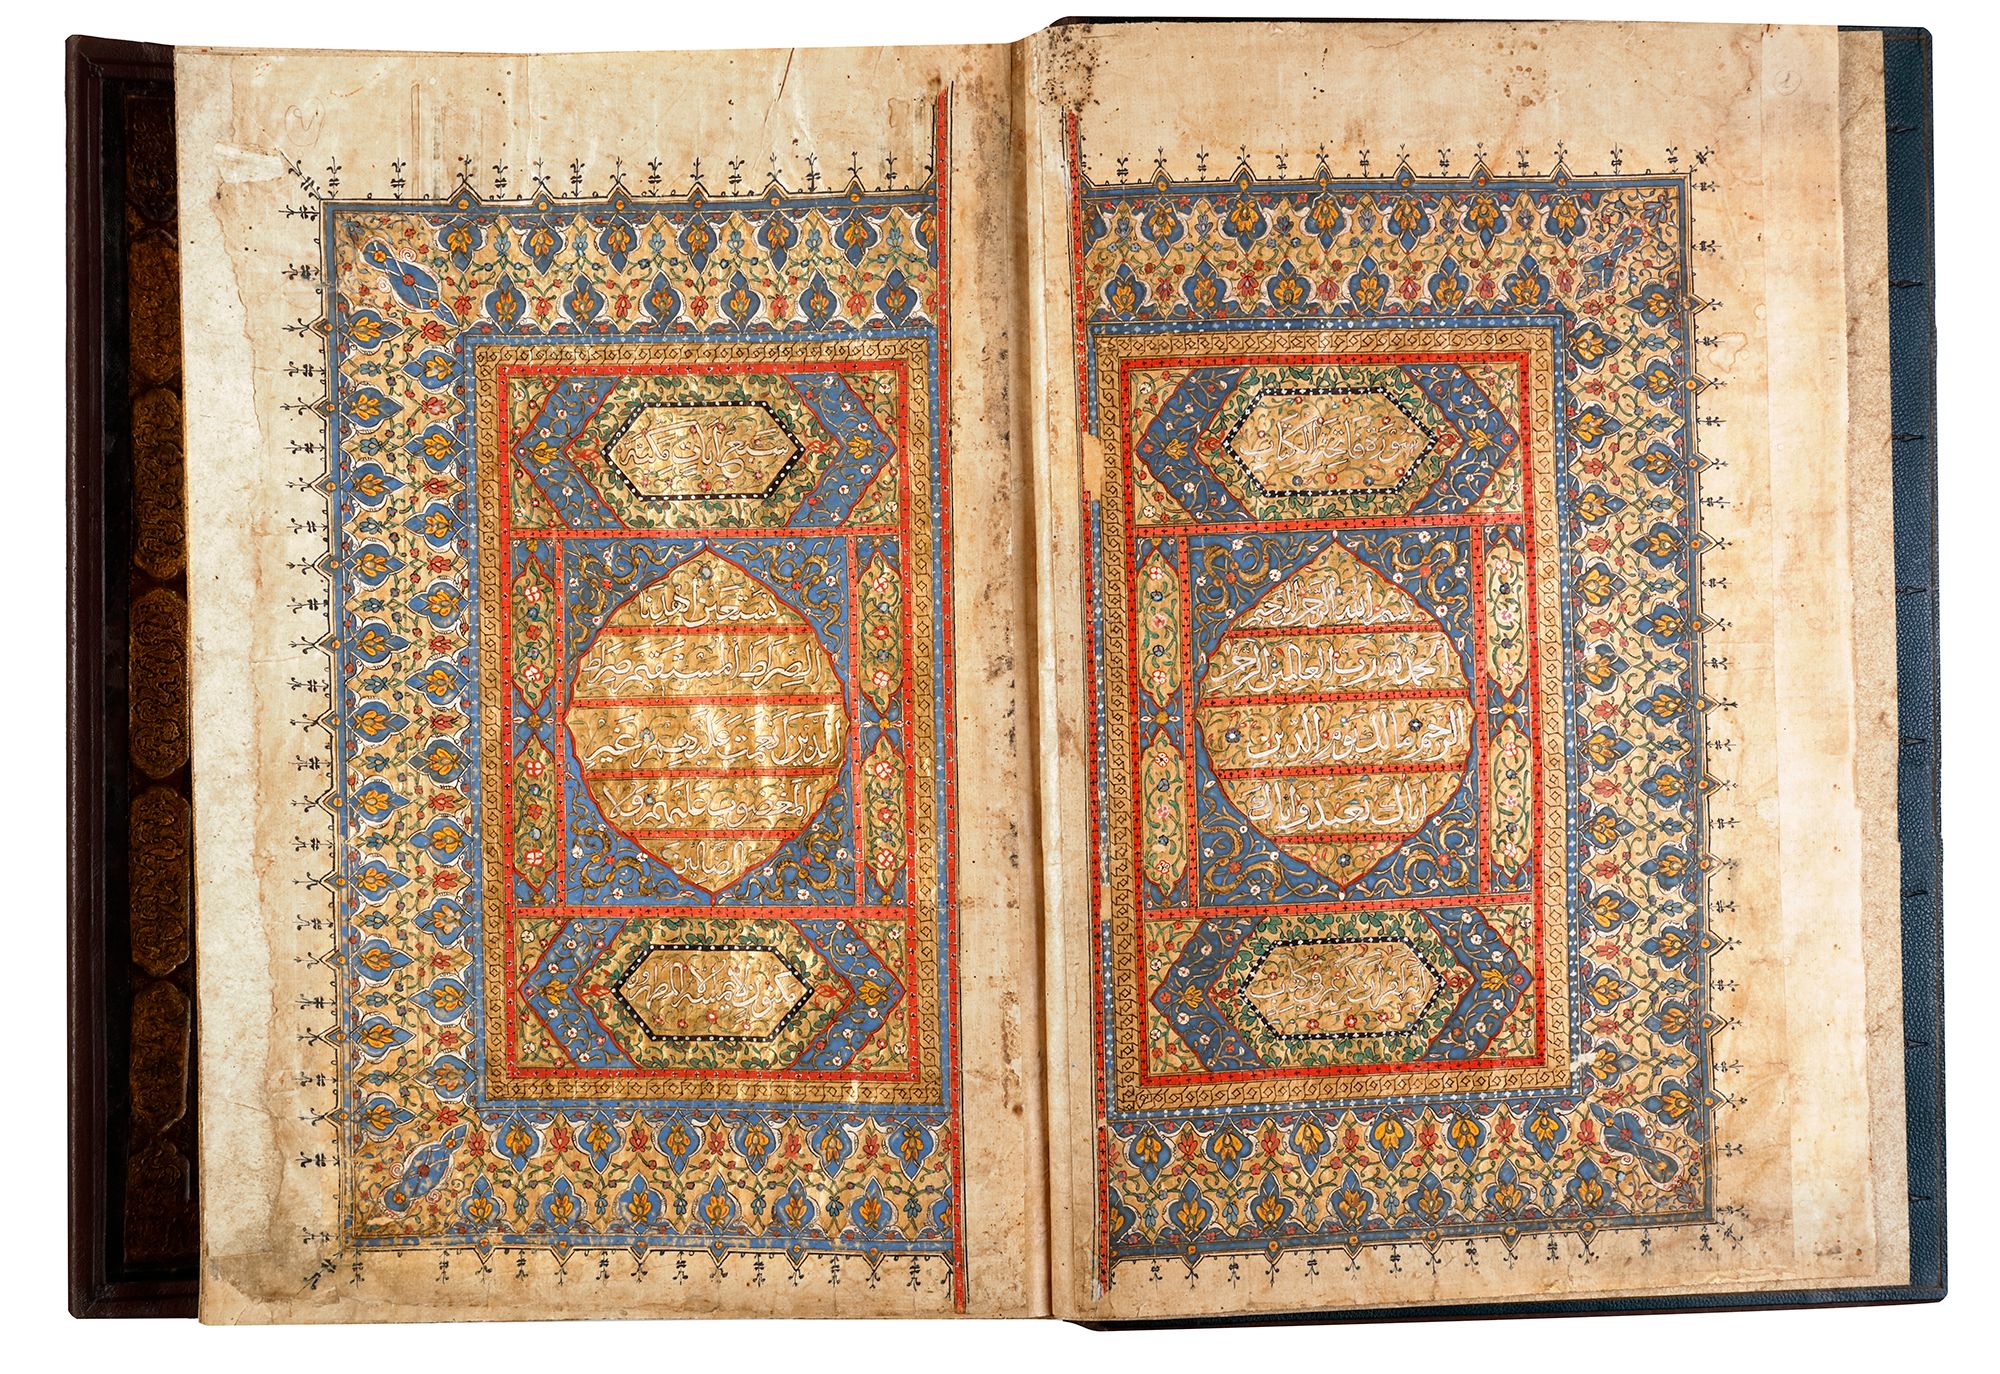 سورة فاتحة الكتاب
بسم الله الرحمن الرحيم
الحمد لله رب العالمين الرحمن
الرحيم مالك يوم الدين
اياك نعبد واياك
انه لقرآن كريم في كتاب
سبع ايات مكية
نستعين اهدنا
الصراط المستقيم صراط
الذين انعمت عليهم غير
المغضوب عليهم ولا
الضالين
مكنون لا يمسه الا المطهرون